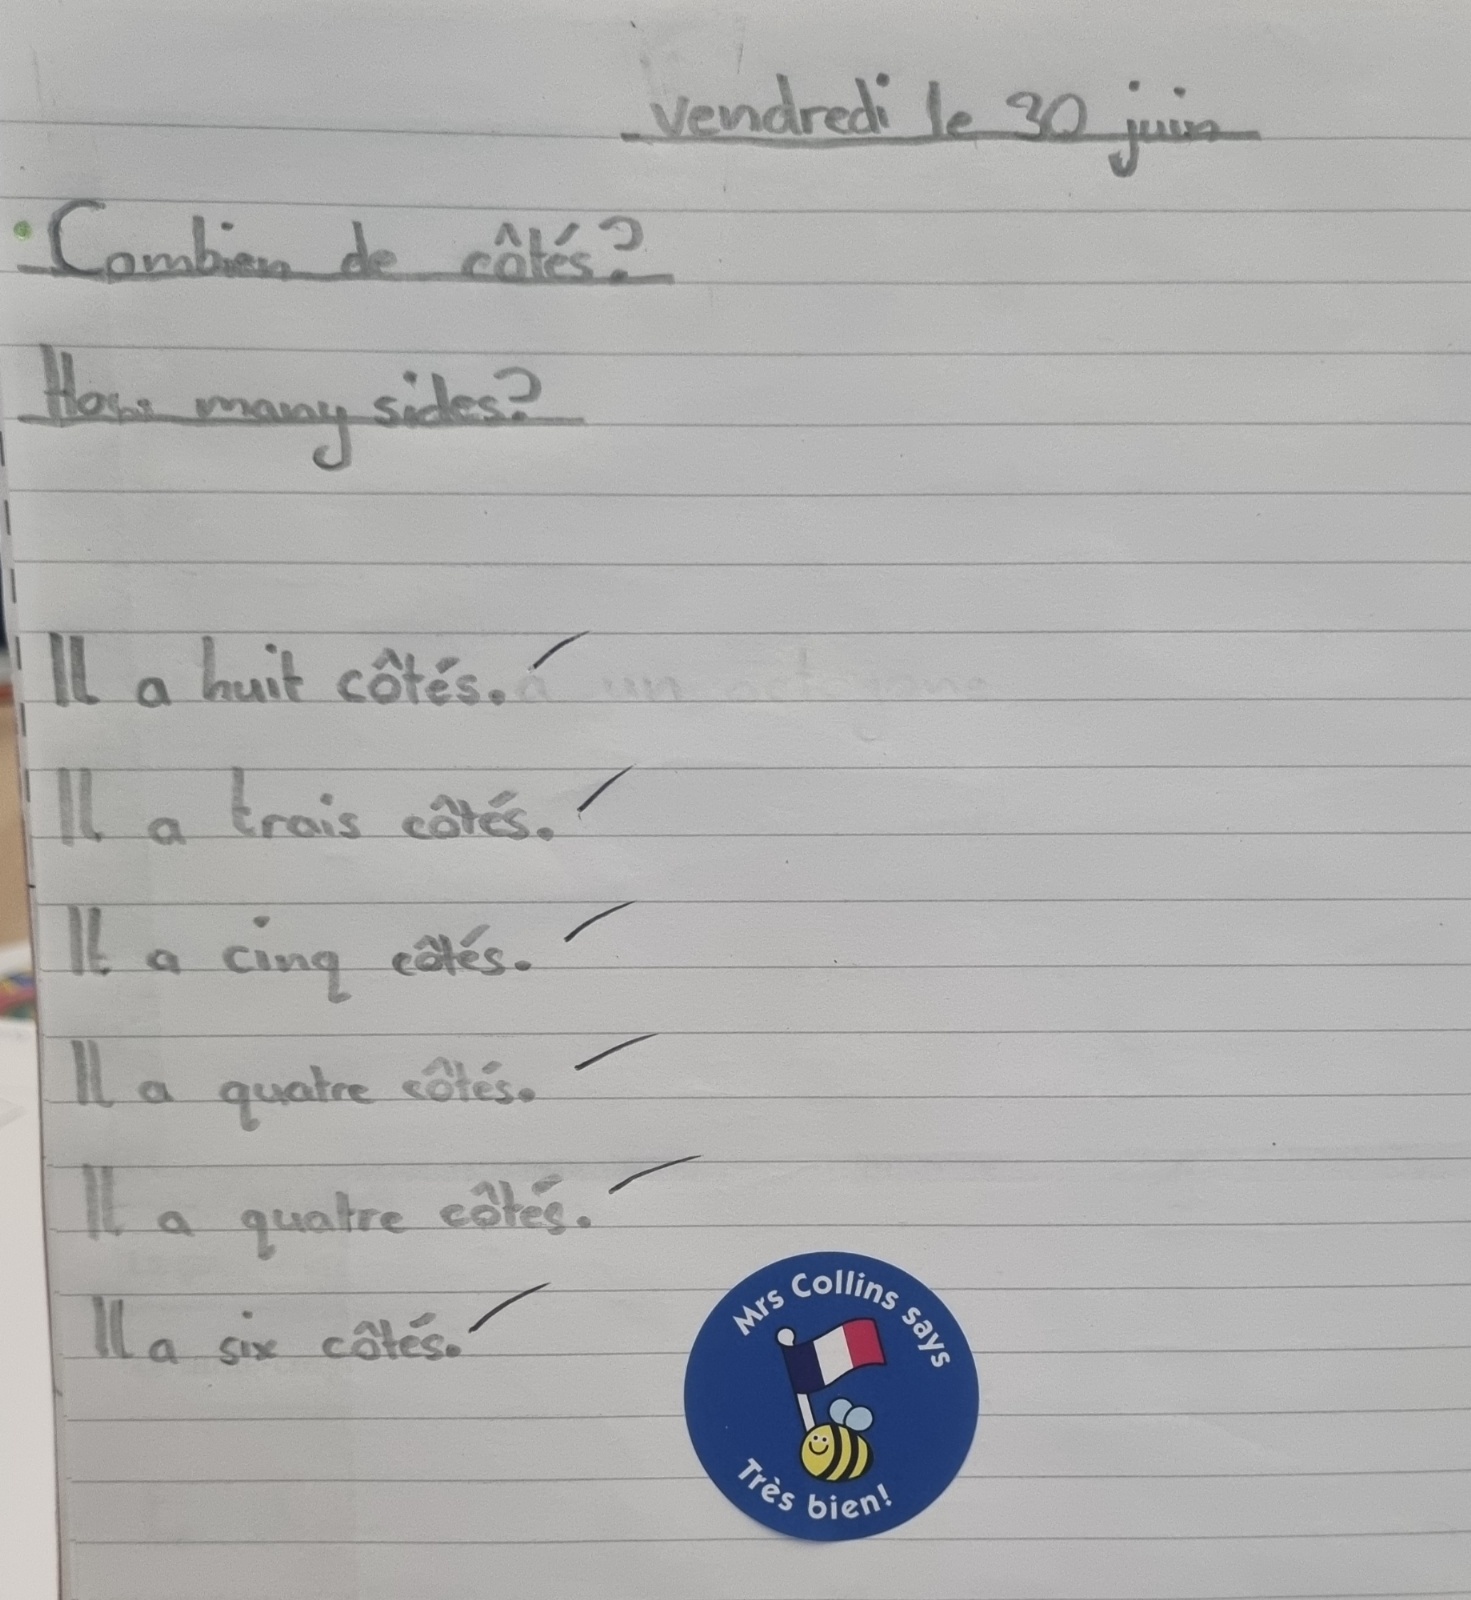 vendredi le 30 juin
Combien de côtés?
How many sides?
Il a huit côtés.
Il a trais côtés.
Il a cinq côtés.
Il a quatre côtés.
Il a quatre côtés.
Il a six côtés.
Mrs Collins says
Très bien!